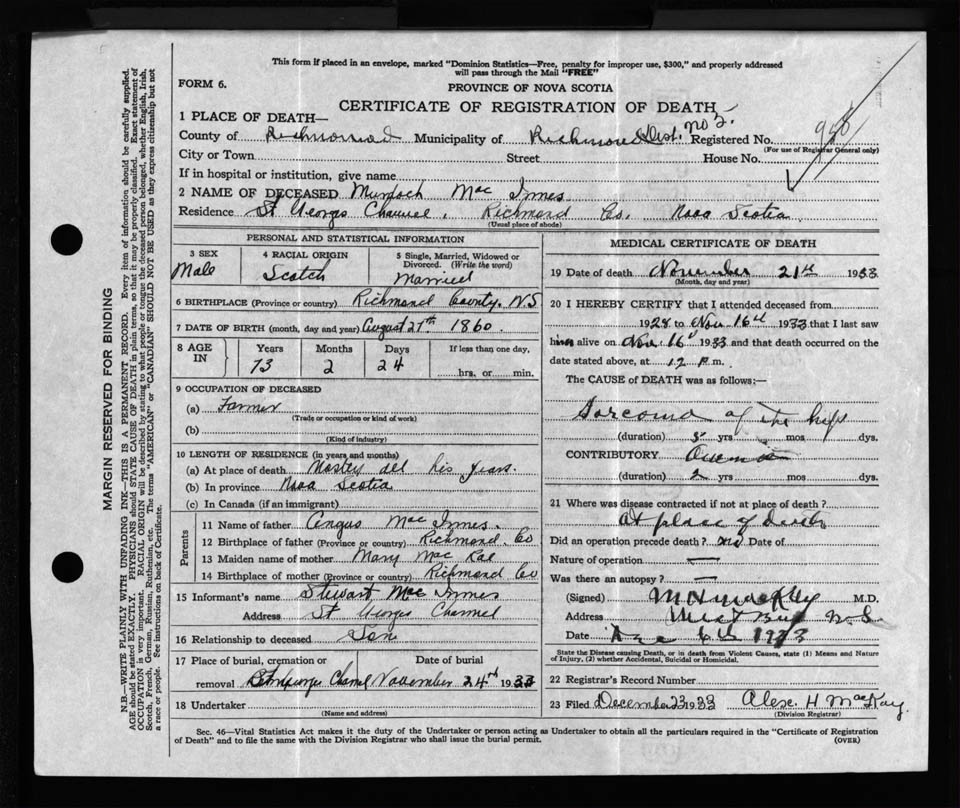 This form if placed in an envelope, marked "Dominion Statistics—Free, penalty for improper use, $300," and properly addressed
will pass through the Mail "FREE"
FORM 6.
PROVINCE OF NOVA SCOTIA
CERTIFICATE OF REGISTRATION OF DEATH
1 PLACE OF DEATH—
County of Richmond Municipality of Richmond Dist. No 2. Registered No.
(For use of Registrar General only)
City or Town Street House No.
If in hospital or institution, give name
2 NAME OF DECEASED Murdoch Mac Innes
Residence St Georges Channel, Richmond Co. Nova Scotia
(Usual place of abode)
PERSONAL AND STATISTICAL INFORMATION
3 SEX Male
4 RACIAL ORIGIN Scotch
5 Single, Married, Widowed or Divorced. (Write the word) Married
6 BIRTHPLACE (Province or country) Richmond County. N.S
7 DATE OF BIRTH (month, day and year) August 27th 1860.
8 AGE IN Years 73 Months 2 Days 24 If less than one day, hrs. or min.
9 OCCUPATION OF DECEASED
(a) Farmer
(Trade or occupation or kind of work)
(b)
(Kind of industry)
10 LENGTH OF RESIDENCE (in years and months)
(a) At place of death Mostly all his years.
(b) In province Nova Scotia
(c) In Canada (if an immigrant)
Parents
11 Name of father Angus Mac Innes.
12 Birthplace of father (Province or country) Richmond. Co
13 Maiden name of mother Mary Mac Rae
14 Birthplace of mother (Province or country) Richmond Co
15 Informant's name Stewart Mac Innes
Address St Georges Channel
16 Relationship to deceased Son
17 Place of burial, cremation or removal Channel Date of burial November 24th 1933
18 Undertaker
(Name and address)
MEDICAL CERTIFICATE OF DEATH
19 Date of death November 21st 1933
(Month, day and year)
20 I HEREBY CERTIFY that I attended deceased from
1928 to Nov. 16th 1933 that I last saw
him alive on Nov. 16th 1933 and that death occurred on the
date stated above, at 12 P.m.
The CAUSE of DEATH was as follows:—
Sarcoma of the hip
(duration) 5 yrs mos dys.
CONTRIBUTORY
(duration) 2 yrs. mos. dys.
21 Where was disease contracted if not at place of death?
At place of death
Did an operation precede death? no Date of
Nature of operation —
Was there an autopsy? —
(Signed) M.D.
Address N.S.
Date Dec 6th 1933
State the Disease causing Death, or in death from Violent Causes, state (1) Means and Nature
of Injury, (2) whether Accidental, Suicidal or Homicidal.
22 Registrar's Record Number
23 Filed December 23 1933 Alex. H MacKay.
(Division Registrar)
Sec. 46—Vital Statistics Act makes it the duty of the Undertaker or person acting as Undertaker to obtain all the particulars required in the "Certificate of Registration
of Death" and to file the same with the Division Registrar who shall issue the burial permit.
(OVER)
MARGIN RESERVED FOR BINDING
N.B.—WRITE PLAINLY WITH UNFADING INK—THIS IS A PERMANENT RECORD. Every item of information should be carefully supplied.
AGE should be stated EXACTLY. PHYSICIANS should STATE CAUSE OF DEATH in plain terms, so that it may be properly classified. Exact statement of
OCCUPATION is very important. RACIAL ORIGIN will be described by stating to what people or tongue the deceased person belonged, whether English, Irish,
Scotch, French, German, Russian, Ruthenian, etc. The terms "AMERICAN" or "CANADIAN" SHOULD NOT BE USED as they express citizenship but not
a race or people. See instructions on back of Certificate.